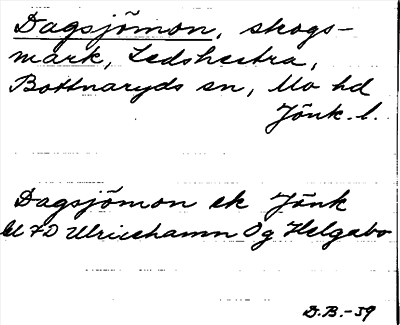 Dagsjömon, skogs-
mark, Ledshestra,
Bottnaryds sn, Mo hd
Jönk. l.
Dagsjömon ek Jönk
bl 7D Ulricehamn Og Helgabo
D.B.-39